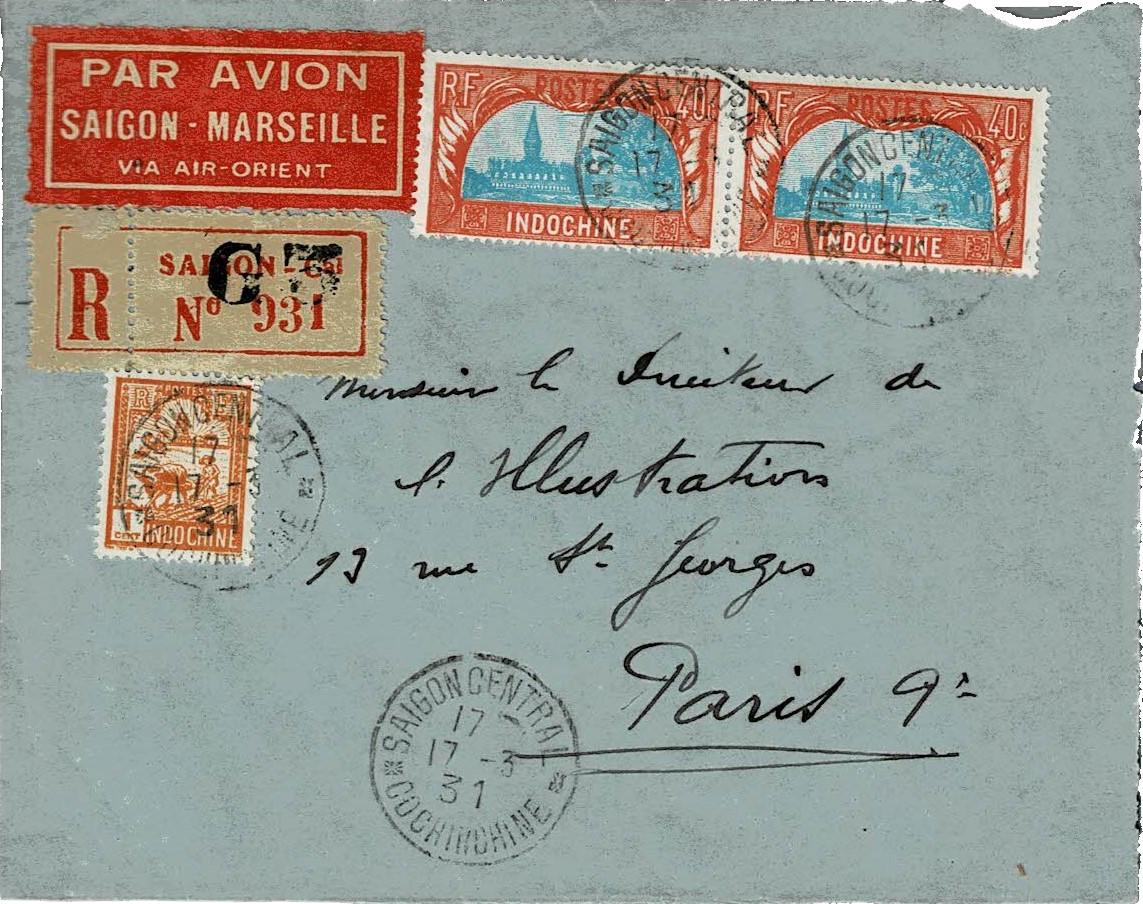 PAR AVION
SAIGON - MARSEILLE
VIA AIR-ORIENT
RF POSTES 40c
INDOCHINE
RF POSTES 40c
INDOCHINE
SAIGON CENTRAL
17
17 - 3
SAIGON CENTRAL
17
17 - 3
R
SAIGON - Cal
No 931
POSTES
1
CENT
INDOCHINE
SAIGON CENTRAL
17
17 - 3
31
Monsieur le Directeur de
l'Illustration
13 rue St Georges
Paris 9e
SAIGON CENTRAL
17
17 - 3
31
COCHINCHINE